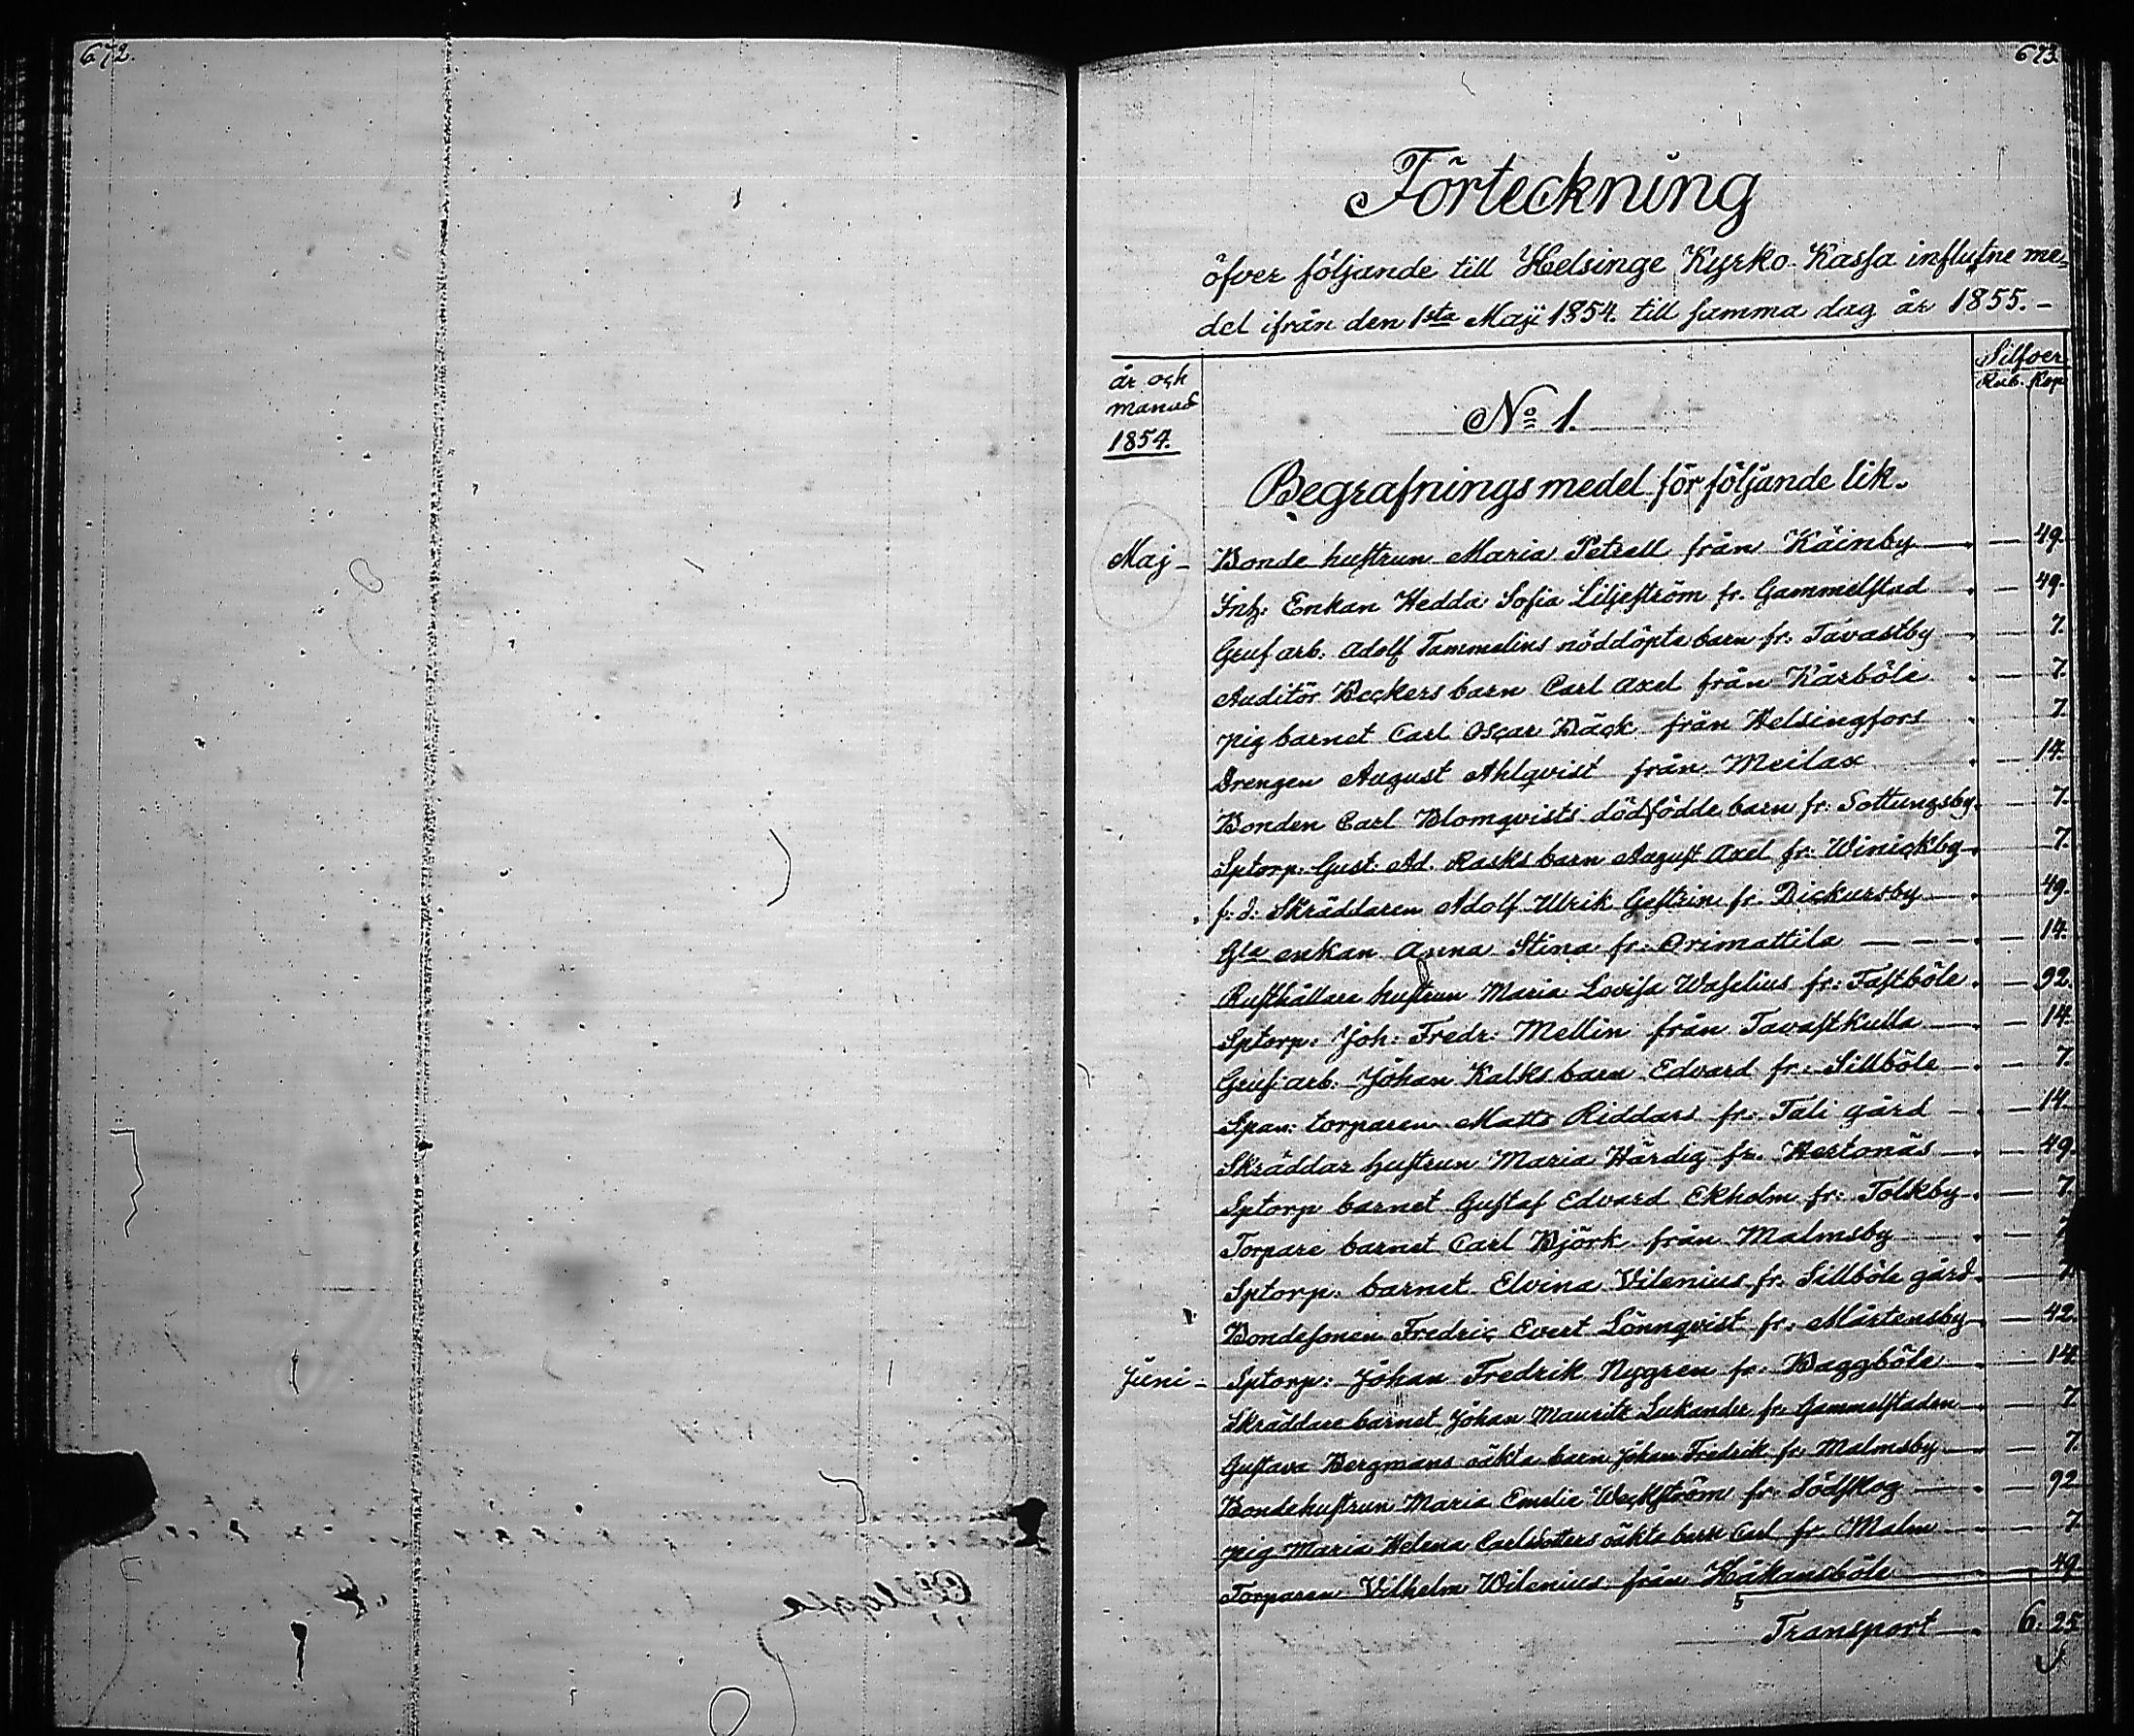 672.
673.
Förteckning
öfver följande till Helsinge Kyrko-Kassa influtne me-
del ifrån den 1sta Maji 1854. till samma dag år 1855.-
Silfver
Rub. Kop
år och
månad
1854.
No 1.
Begrafningsmedel för följande lik.
Maj - Bonde hustrun Maria Petrell från Käinby — 49.
Inh: Enkan Hedda Sofia Liljeström fr. Gammelstad — 49.
Gruf arb: Adolf Tammelins nöddöpta barn fr: Tavastby — 7.
Auditör Beckers barn Carl Axel från Kårböle — 7.
pig barnet Carl Oscar Bäck från Helsingfors — 7.
Drengen August Ahlqvist från Meilax — 14.
Bonden Carl Blomqvists dödfödde barn fr: Sottungsby — 7.
Sptorp: Gust: Ad. Rasks barn August Axel fr: Winickby — 7.
f: d: Skräddaren Adolf Ulrik Gestrin fr. Dickursby — 49.
Gla enkan Anna Stina fr: Orimattila — — — 14.
Rusthållare hustrun Maria Lovisa Waselius fr: Fastböle — 92.
Sptorp: Joh: Fredr: Mellin från Tavastkulla — 14.
Gruf: arb. Johan Kalks barn Edvard fr: Sillböle — 7.
Span: torparen Matts Riddars fr: Tali gård — 14.
Skräddar hustrun Maria Härdig fr. Hertonäs — 49.
Sptorp barnet Gustaf Edvard Ekholm fr: Tolkby — 7.
Torpare barnet Carl Björk från Malmsby — 7
Sptorp: barnet Elvina Vilenius fr. Sillböle gård — 7.
Bondesonen Fredric Evert Lönnqvist fr. Mårtensby — 42.
Juni - Sptorp: Johan Fredrik Nygren fr. Baggböle — 14.
Skräddare barnet Johan Mauritz Lukander fr. Gammelstaden — 7.
Gustava Bergmans oäkta barn Johan Fredrik fr. Malmsby — 7.
Bondehustrun Maria Emelie Weckström fr. Södskog — 92
pig Maria Helena Carlsdotters oäkta barn Carl fr. Malm — 7.
Torparen Vilhelm Wilenius från Håkansböle — 49
Transport — 6. 25